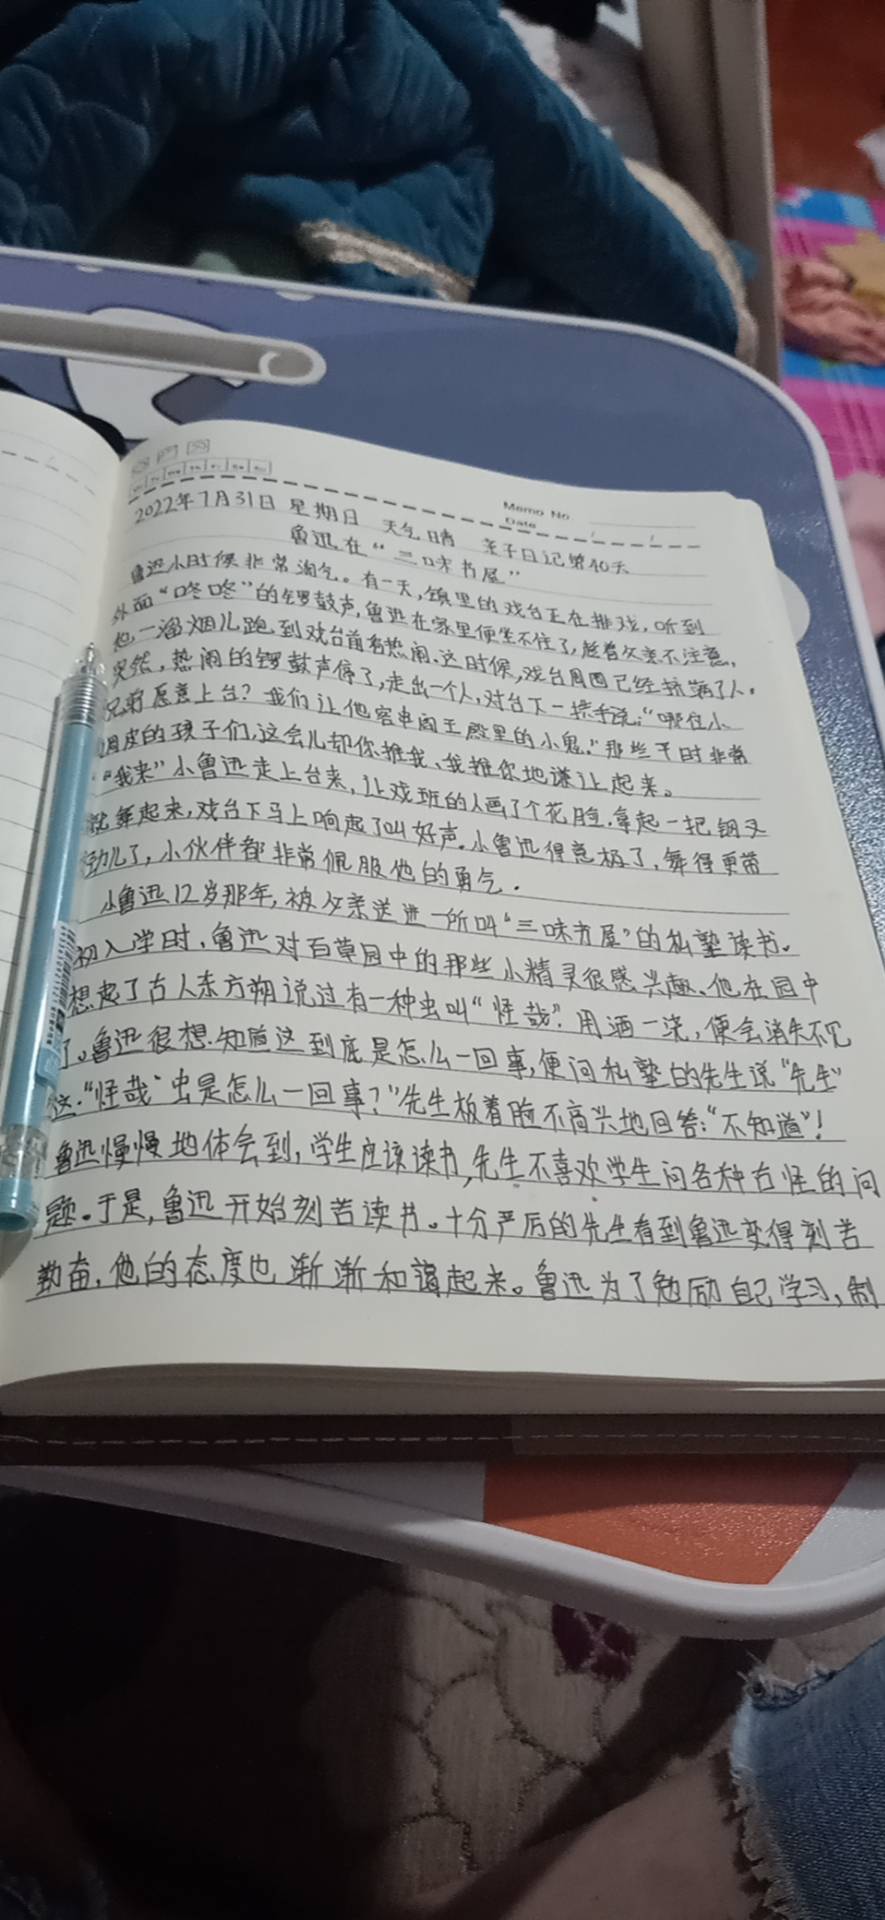 Memo No.
Date
2022年7月31日 星期日 天气晴 亲子日记第40天
鲁迅在“三味书屋”
鲁迅小时候非常淘气。有一天,镇里的戏台正在排戏,听到
外面“咚咚”的锣鼓声,鲁迅在家里便坐不住了,趁着父亲不注意,
他一溜烟儿跑到戏台前看热闹.这时候,戏台周围已经挤满了人。
突然,热闹的锣鼓声停了,走出一个人,对台下一揉手说:“哪位小
兄弟愿意上台?我们让他客串阎王殿里的小鬼.”那些平时非常
调皮的孩子们,这会儿却你推我、我推你地谦让起来。
“我来”小鲁迅走上台来,让戏班的人画了个花脸.拿起一把钢叉
就舞起来,戏台下马上响起了叫好声.小鲁迅得意极了,舞得更带
劲儿了,小伙伴都非常佩服他的勇气.
小鲁迅12岁那年,被父亲送进一所叫“三味书屋”的私塾读书。
初入学时,鲁迅对百草园中的那些小精灵很感兴趣、他在园中
想起了古人东方朔说过有一种虫叫“怪哉”.用酒一浇,便会消失不见
了。鲁迅很想.知道这到底是怎么一回事,便问私塾的先生说“先生”
这.“怪哉”虫是怎么一回事?”先生板着脸不高兴地回答:“不知道”!
鲁迅慢慢地体会到,学生应该读书,先生不喜欢学生问各种古怪的问
题。于是,鲁迅开始刻苦读书。十分严厉的先生看到鲁迅变得刻苦
勤奋,他的态度也渐渐和蔼起来。鲁迅为了勉励自己学习,制